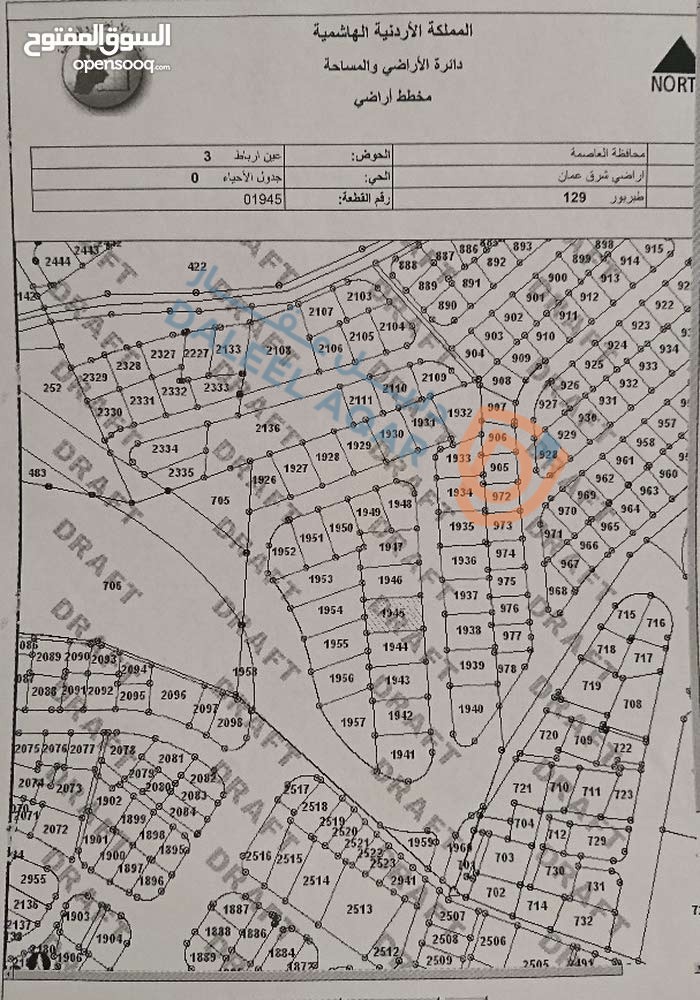 السوق المفتوح
opensooq.com
المملكة الأردنية الهاشمية
دائرة الأراضي والمساحة
مخطط أراضي
NORT
محافظة العاصمة الحوض: عين ارباط 3
اراضي شرق عمان الحي: جدول الأحياء 0
طبربور 129 رقم القطعة: 01945
DALEEL AQAR
DRAFT
2443 422 886 893 898 915
2444 888 887 892 899 914
2103 889 891 900 913
2107 890 901 912 922
2104 902 911
2105 903 910 923
2327 2227 2133 2108 2106 904 909 924 934
2328 925 933
2329 2332 2333 2110 2109 908 926 932
252 2331 2111 907 927 931
2330 1931 1932 930 957
2136 1930 906 929 958
2334 1929 1933 928 961
483 2335 1928 905 962
1927 1934 972 969 963
705 1926 1948 970 964
1949 1935 973 965
1950 971
1951 1947 1936 974 966
1952 967
706 1953 1946 1937 975 968
1954 1945 976 715 716
1938 977
1955 1944 718 717
2089 2090 2093 1939 978
2094 1958 1956 1943 719
2088 2091 2092 2095 2096 2097 1942 1940 708
2098 1957 720 709 722
2075 2076 2077 2078 1941
2081
2079 2082 2517 721 710 711 723
2073 2080 2083 2518
1902 2084 2519 704
2072 1899 2520 712 729
1901 1898 2521 1959
1900 1895 2516 2515 2522 703
1897 2523 730
2955 1896 2514 2941 731
702
2136 1887 2513 714
1903 2507 732
2137 1904 1888 1886 2508 2506
1906 1889 1884 2512 2509 2505
1872